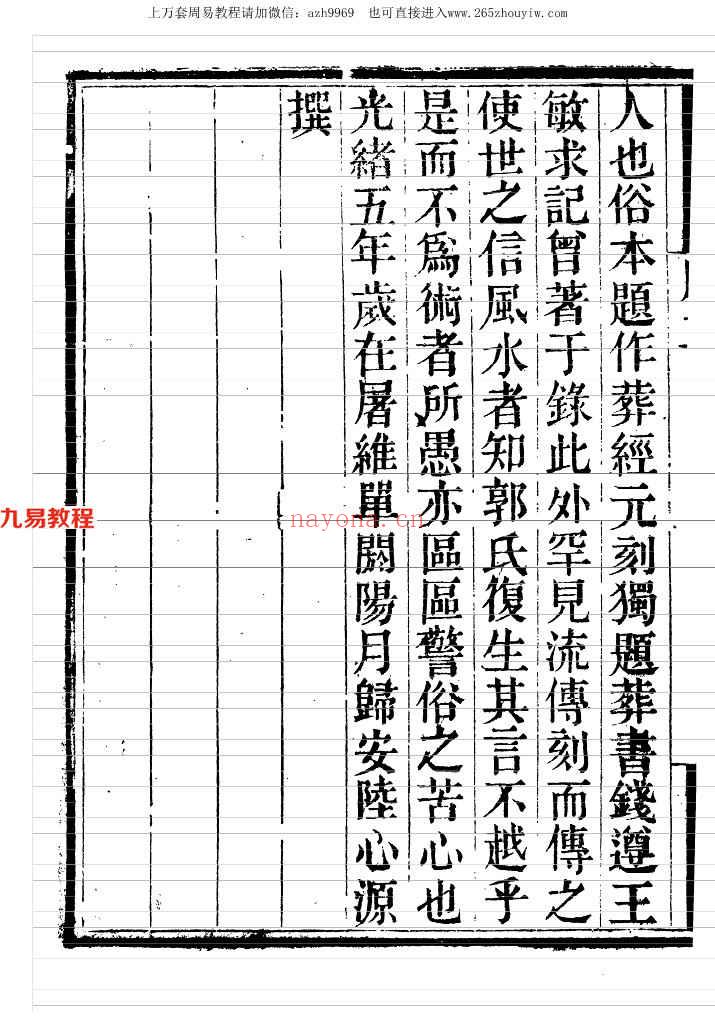 上万套周易教程请加微信：azh9969 也可直接进入www.265zhouyiw.com
人也俗本題作葬經元刻獨題葬書錢遵王
敏求記曾著于錄此外罕見流傳刻而傳之
使世之信風水者知郭氏復生其言不越乎
是而不爲術者所愚亦區區警俗之苦心也
光緒五年歲在屠維單閼陽月歸安陸心源
撰
九易教程
nayona.cn